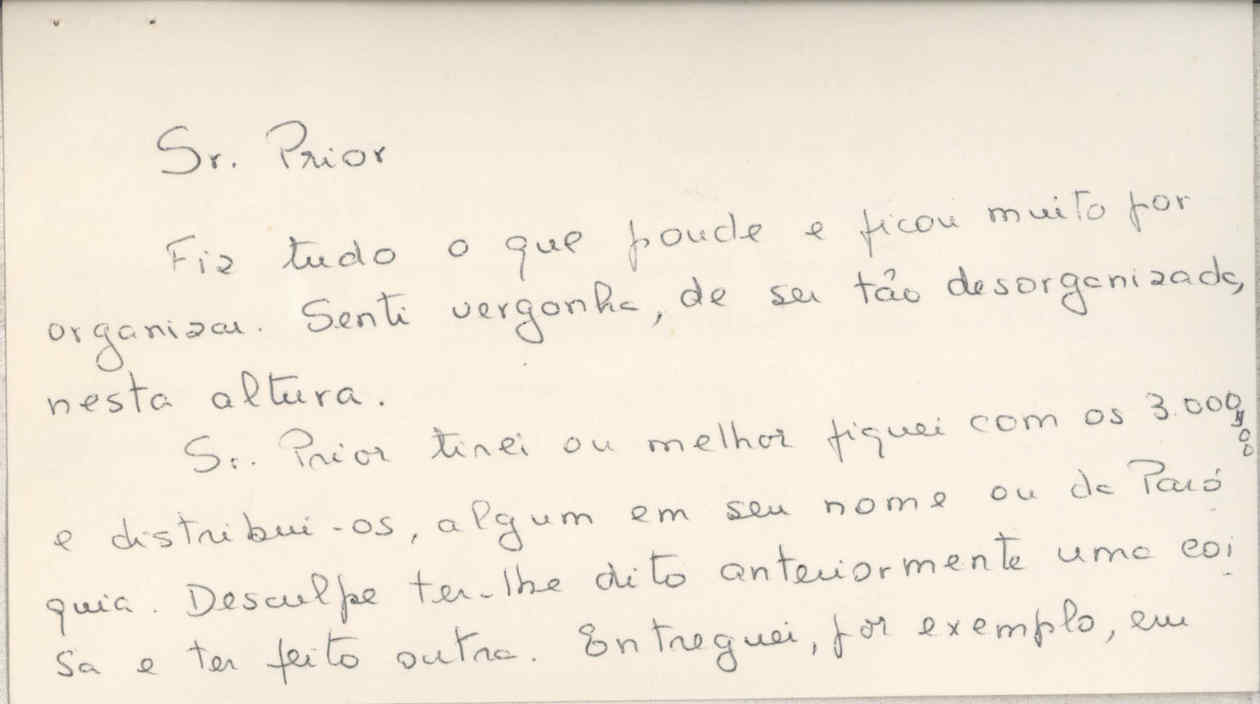 Sr. Prior
Fiz tudo o que poude e ficou muito por
organizar. Senti vergonha, de ser tão desorganizada,
nesta altura.
Sr. Prior tirei ou melhor fiquei com os 3.000$00
e distribui-os, algum em seu nome ou da Paró
quia. Desculpe ter-lhe dito anteriormente uma coi
sa e ter feito outra. Entreguei, por exemplo, em